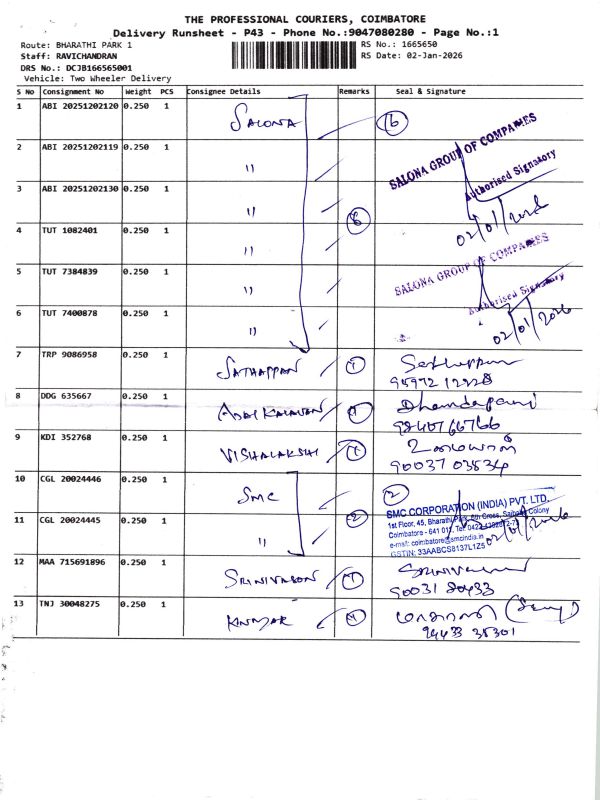 THE PROFESSIONAL COURIERS, COIMBATORE
Delivery Runsheet - P43 - Phone No.:9047080280 - Page No.:1
Route: BHARATHI PARK 1
RS No.: 1665650
Staff: RAVICHANDRAN
RS Date: 02-Jan-2026
DRS No.: DCJB166565001
Vehicle: Two Wheeler Delivery
S No Consignment No Weight PCS Consignee Details Remarks Seal & Signature
1 ABI 20251202120 0.250 1 SALONA 6
SALONA GROUP OF COMPANIES
Authorised Signatory
02/01/2026
2 ABI 20251202119 0.250 1 "
3 ABI 20251202130 0.250 1 " 6
4 TUT 1082401 0.250 1 "
SALONA GROUP OF COMPANIES
Authorised Signatory
02/01/2026
5 TUT 7384839 0.250 1 "
6 TUT 7400878 0.250 1 "
7 TRP 9086958 0.250 1 SATHAPPAN 1
8 DDG 635667 0.250 1 1 Dhandapani
9840766766
9 KDI 352768 0.250 1 VISHALAKSHI 1
90037 03534
10 CGL 20024446 0.250 1 SMC 2
SMC CORPORATION (INDIA) PVT. LTD.
1st Floor, 45, Bharathi Park, 6th Cross, Saibaba Colony
Coimbatore - 641 011, Tel: 0422
e-mail: coimbatore@smcindia.in
GSTIN: 33AABCS8137L1Z5
11 CGL 20024445 0.250 1 " 2
12 MAA 715691896 0.250 1 SRINIVASON 1
90031 80433
13 TNJ 30048275 0.250 1 KUMAR 1
94433 35301